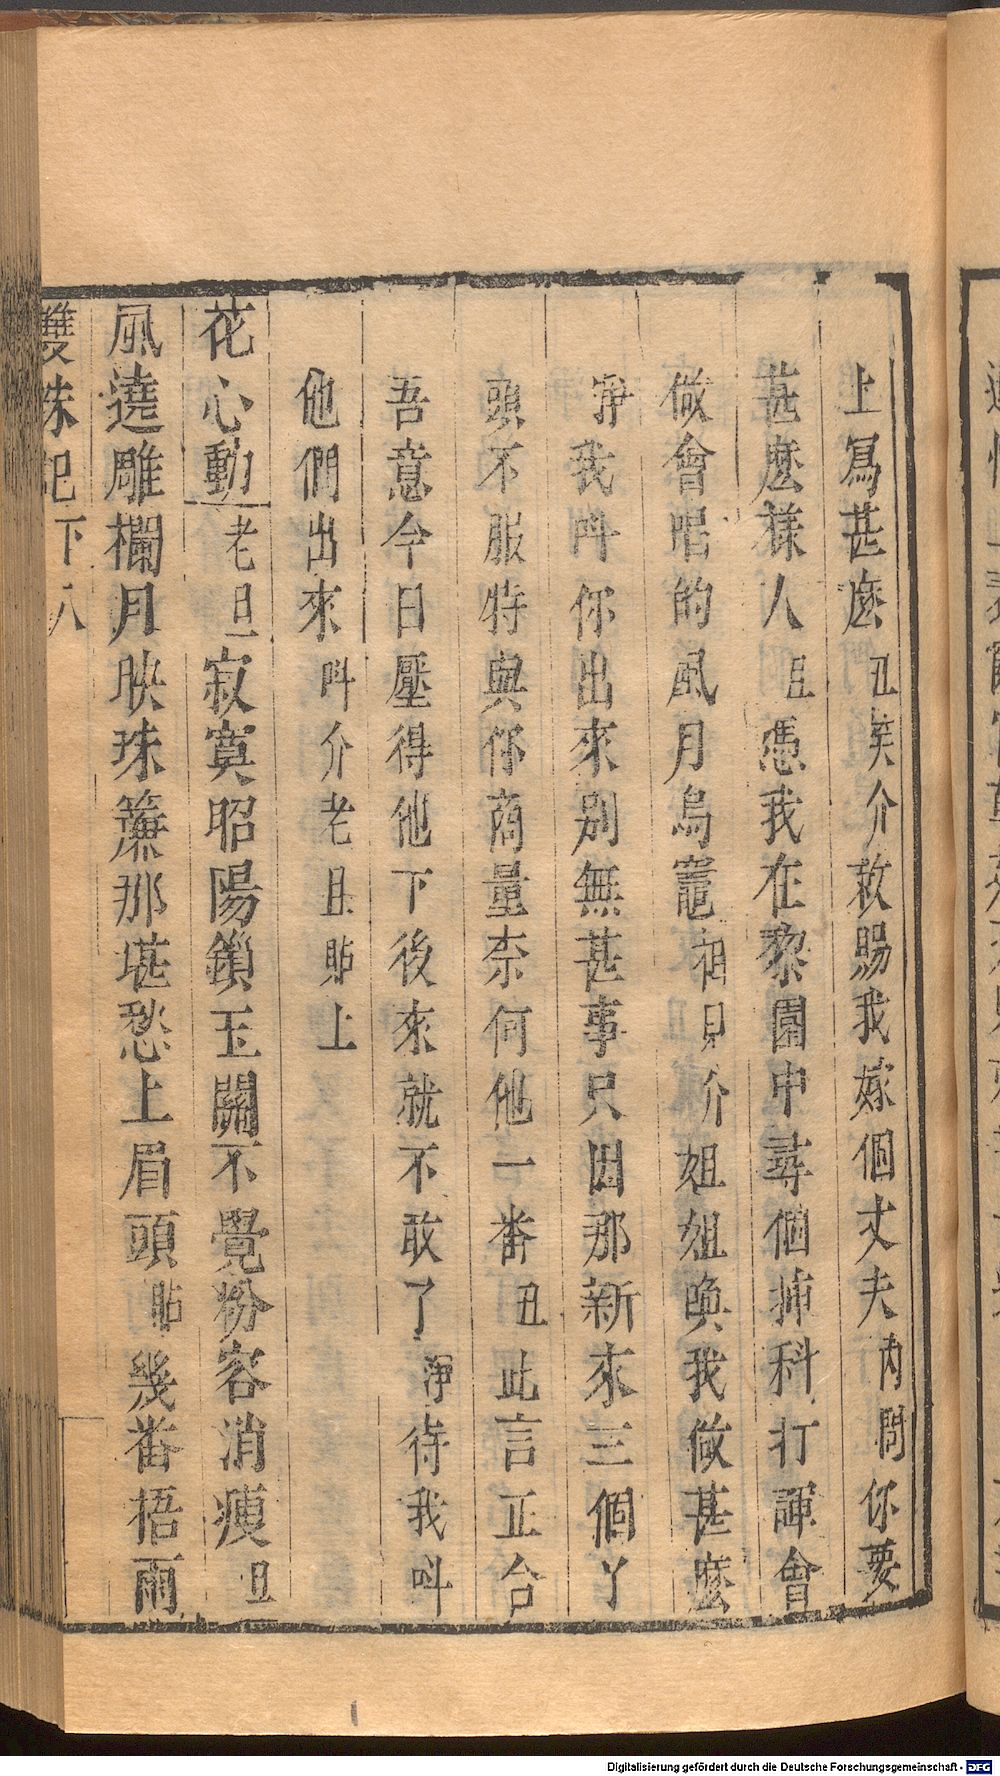 上爲甚麽丑笑介敢賜我嫁個丈夫內問你要
甚麽樣人丑憑我在黎園中尋個揷科打諢會
做會唱的風月烏龜相見介姐姐喚我做甚麽
淨我叫你出來別無甚事只因那新來三個丫
頭不服特與你商量奈何他一番丑此言正合
吾意今日壓得他下後來就不敢了淨待我叫
他們出來叫介老旦貼上
花心動老旦寂寞昭陽鎖玉關不覺粉容消瘦旦
風遶雕欄月映珠簾那堪愁上眉頭貼幾番梧雨
雙珠記下八
Digitalisierung gefördert durch die Deutsche Forschungsgemeinschaft - DFG